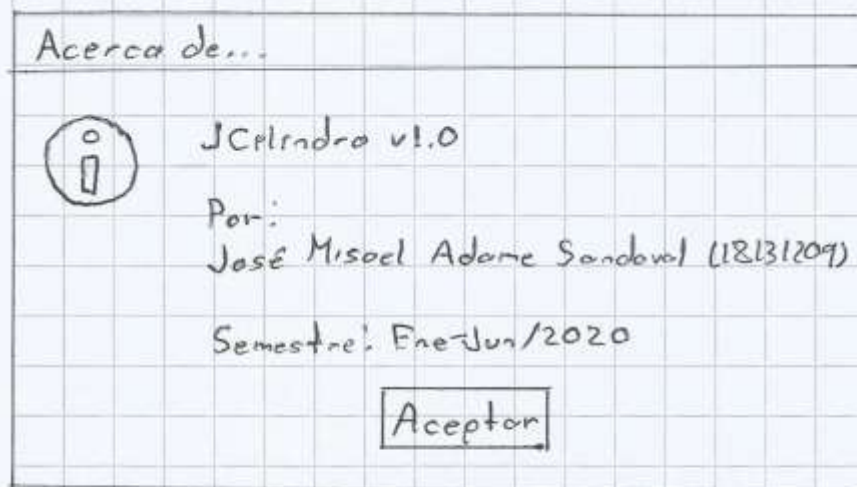 Acerca de...
JCilindro v1.0
Por:
José Misael Adame Sandoval (18131209)
Semestre: Ene-Jun/2020
Aceptar